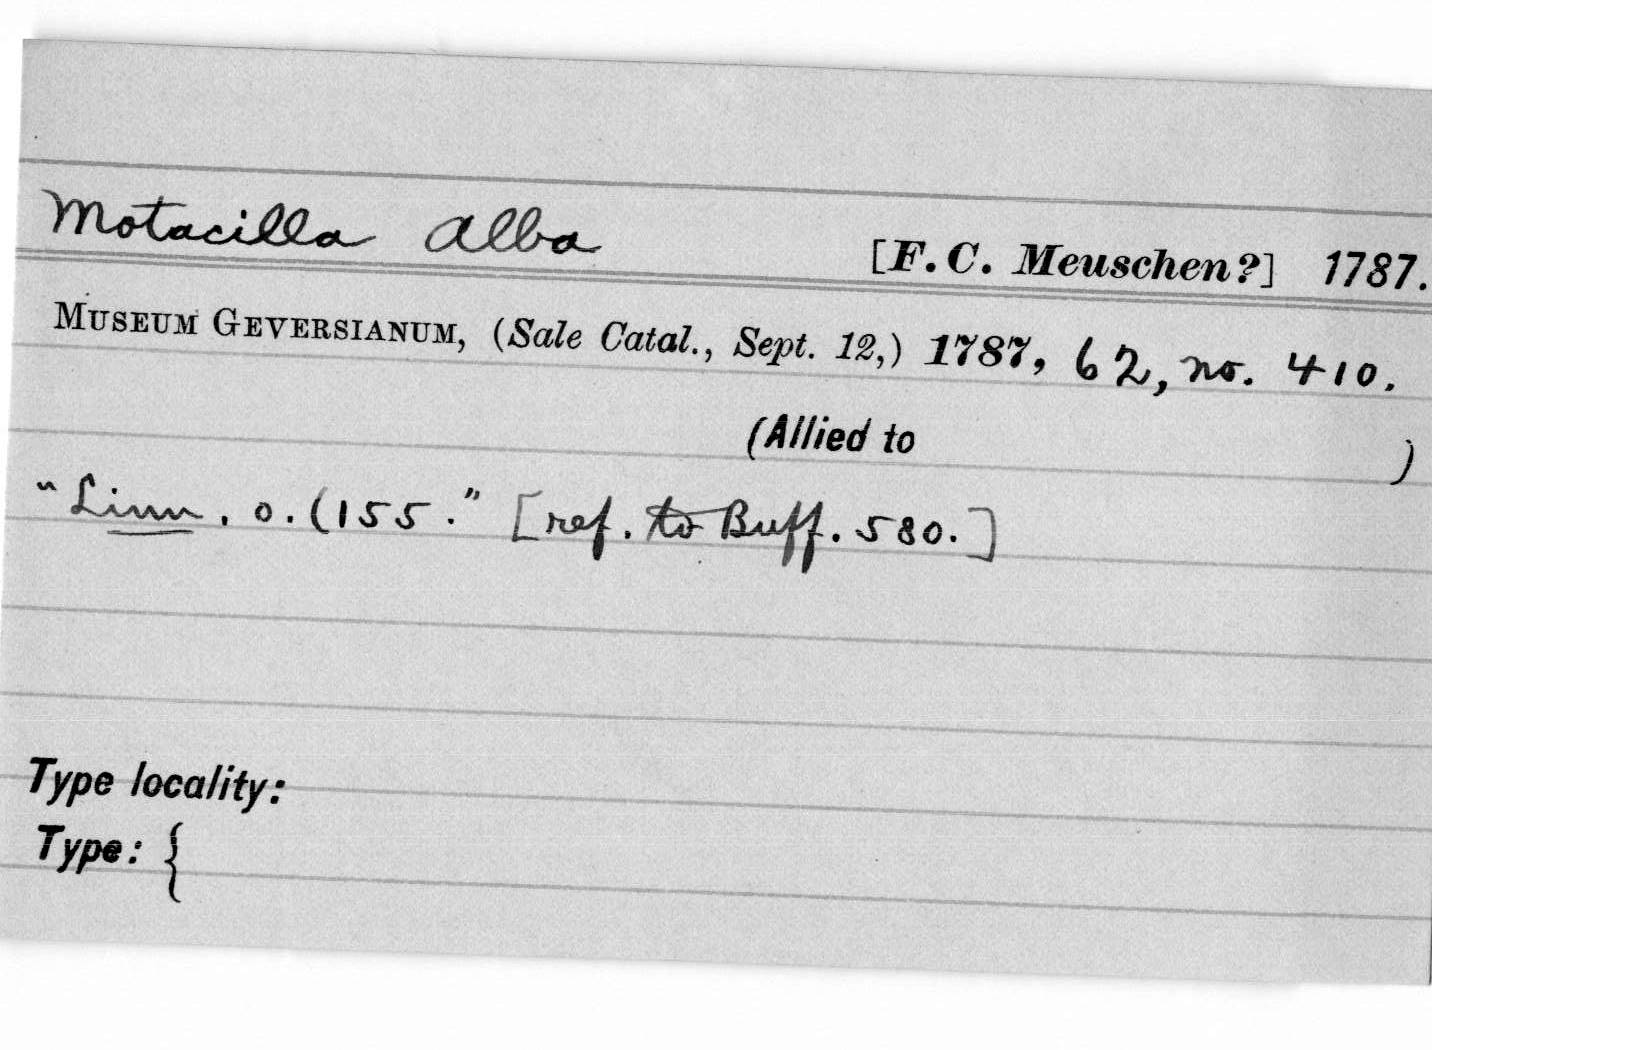 Motacilla alba [F. C. Meuschen?] 1787.
MUSEUM GEVERSIANUM, (Sale Catal., Sept. 12,) 1787, 62, no. 410.
(Allied to )
"Linn. o. (155." [ref. to Buff. 580.]
Type locality:
Type: {